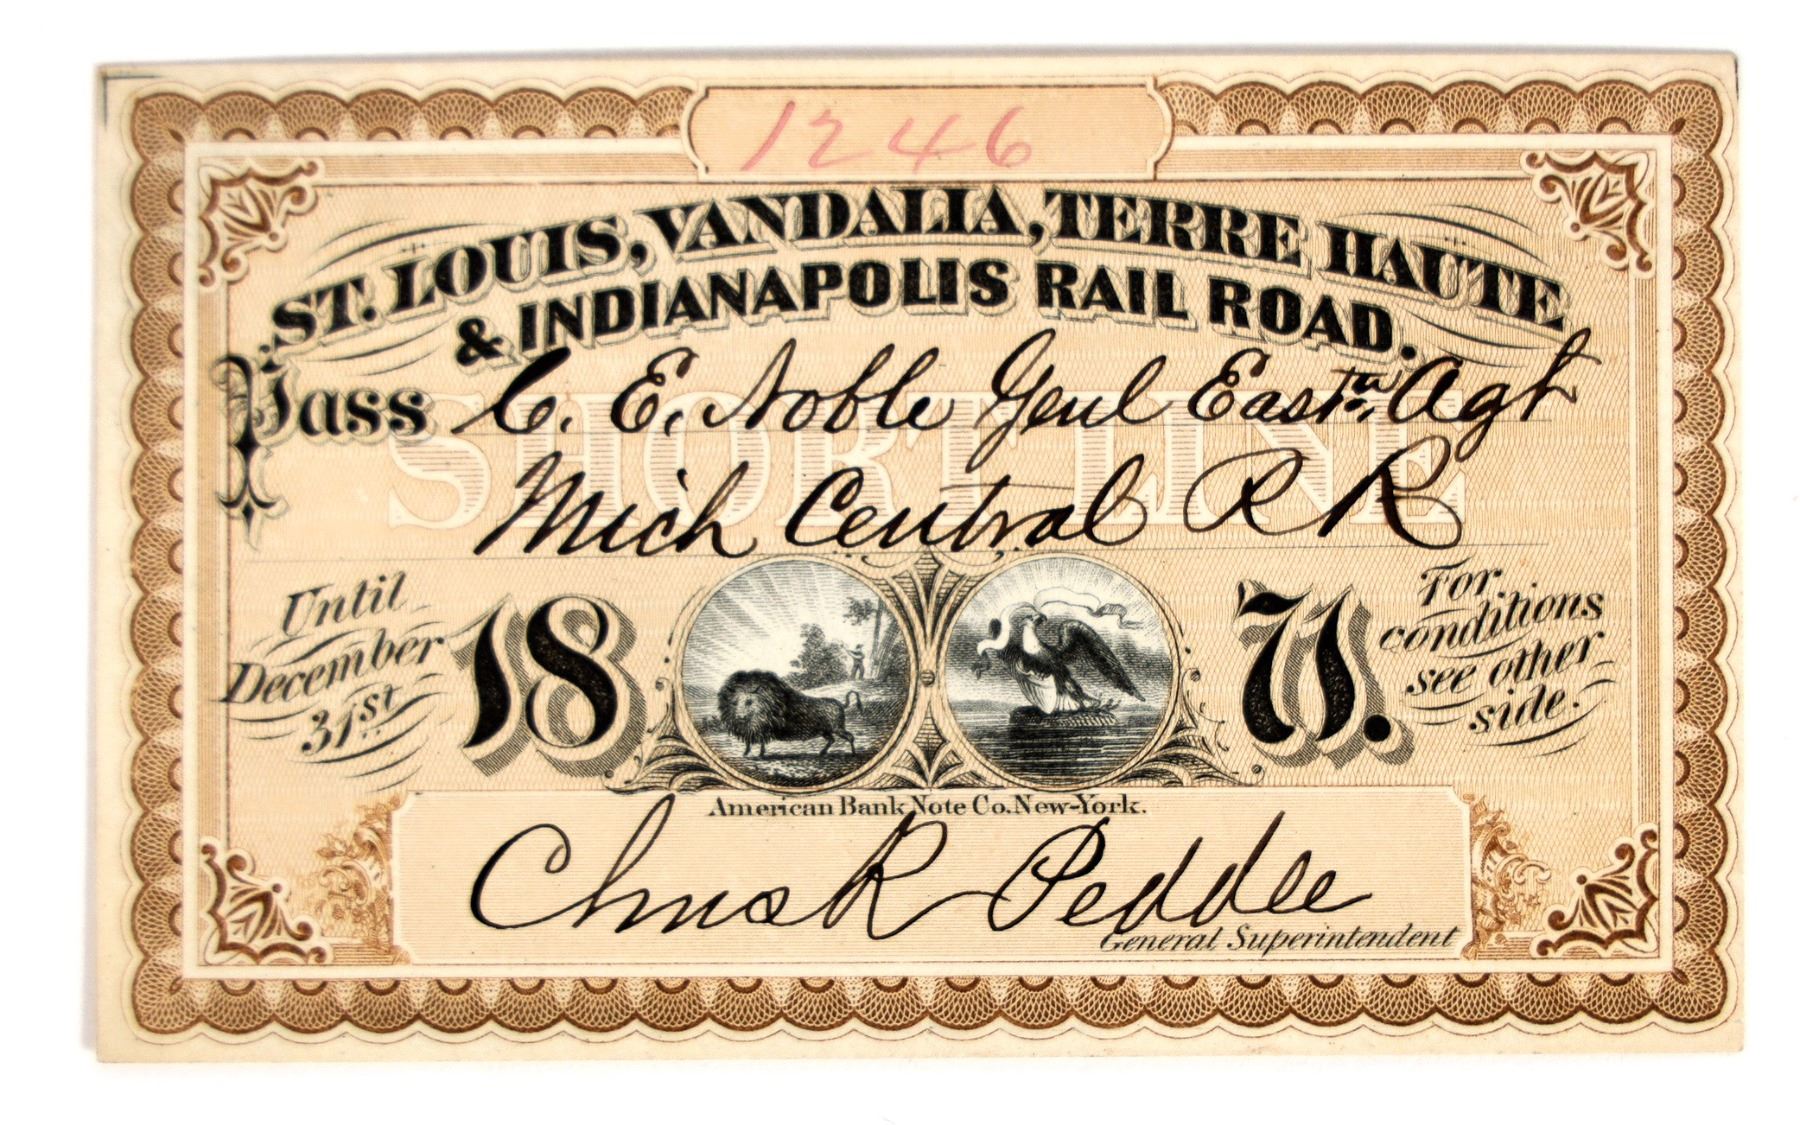 1246
ST. LOUIS, VANDALIA, TERRE HAUTE
& INDIANAPOLIS RAIL ROAD.
Pass C. E. Noble Genl Eastrn Agt
SHORT LINE
Mich Central RR
Until December 31st 1871.
For conditions see other side.
American Bank Note Co. New-York.
Chas R Peddle
General Superintendent